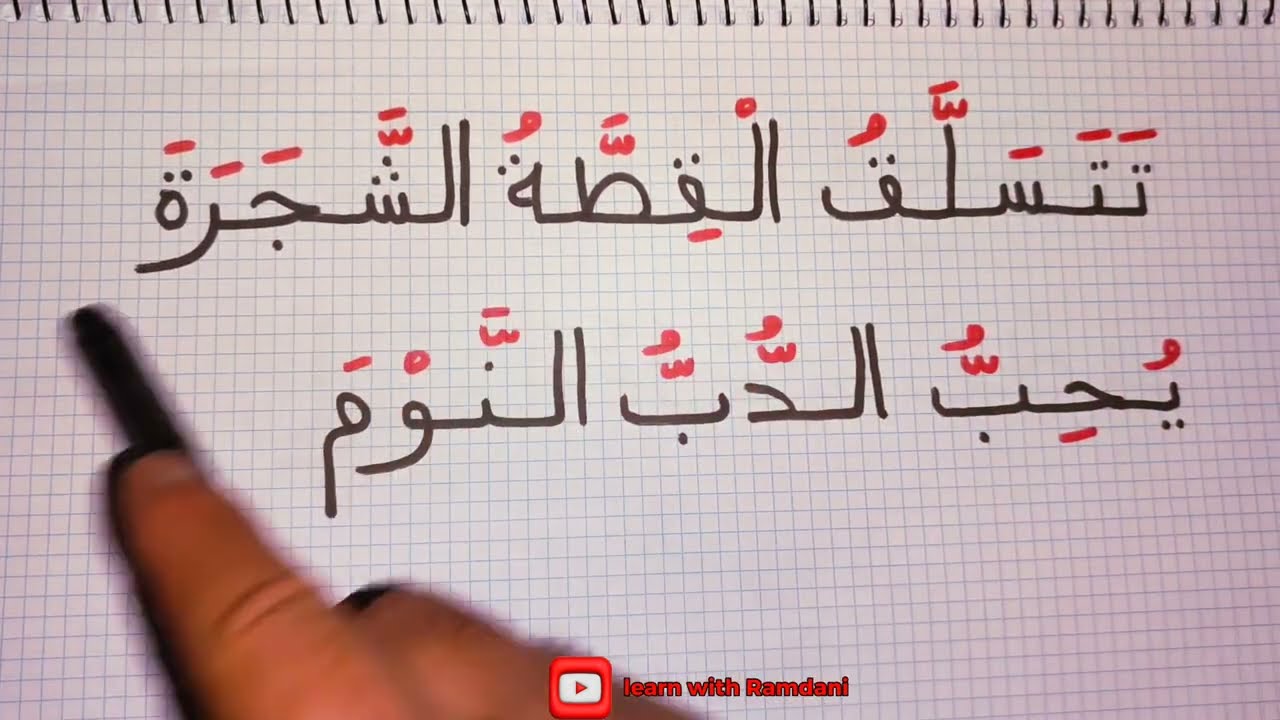 تَتَسَلَّقُ الْقِطَّةُ الشَّجَرَةَ
يُحِبُّ الدُّبُّ النَّوْمَ
learn with Ramdani